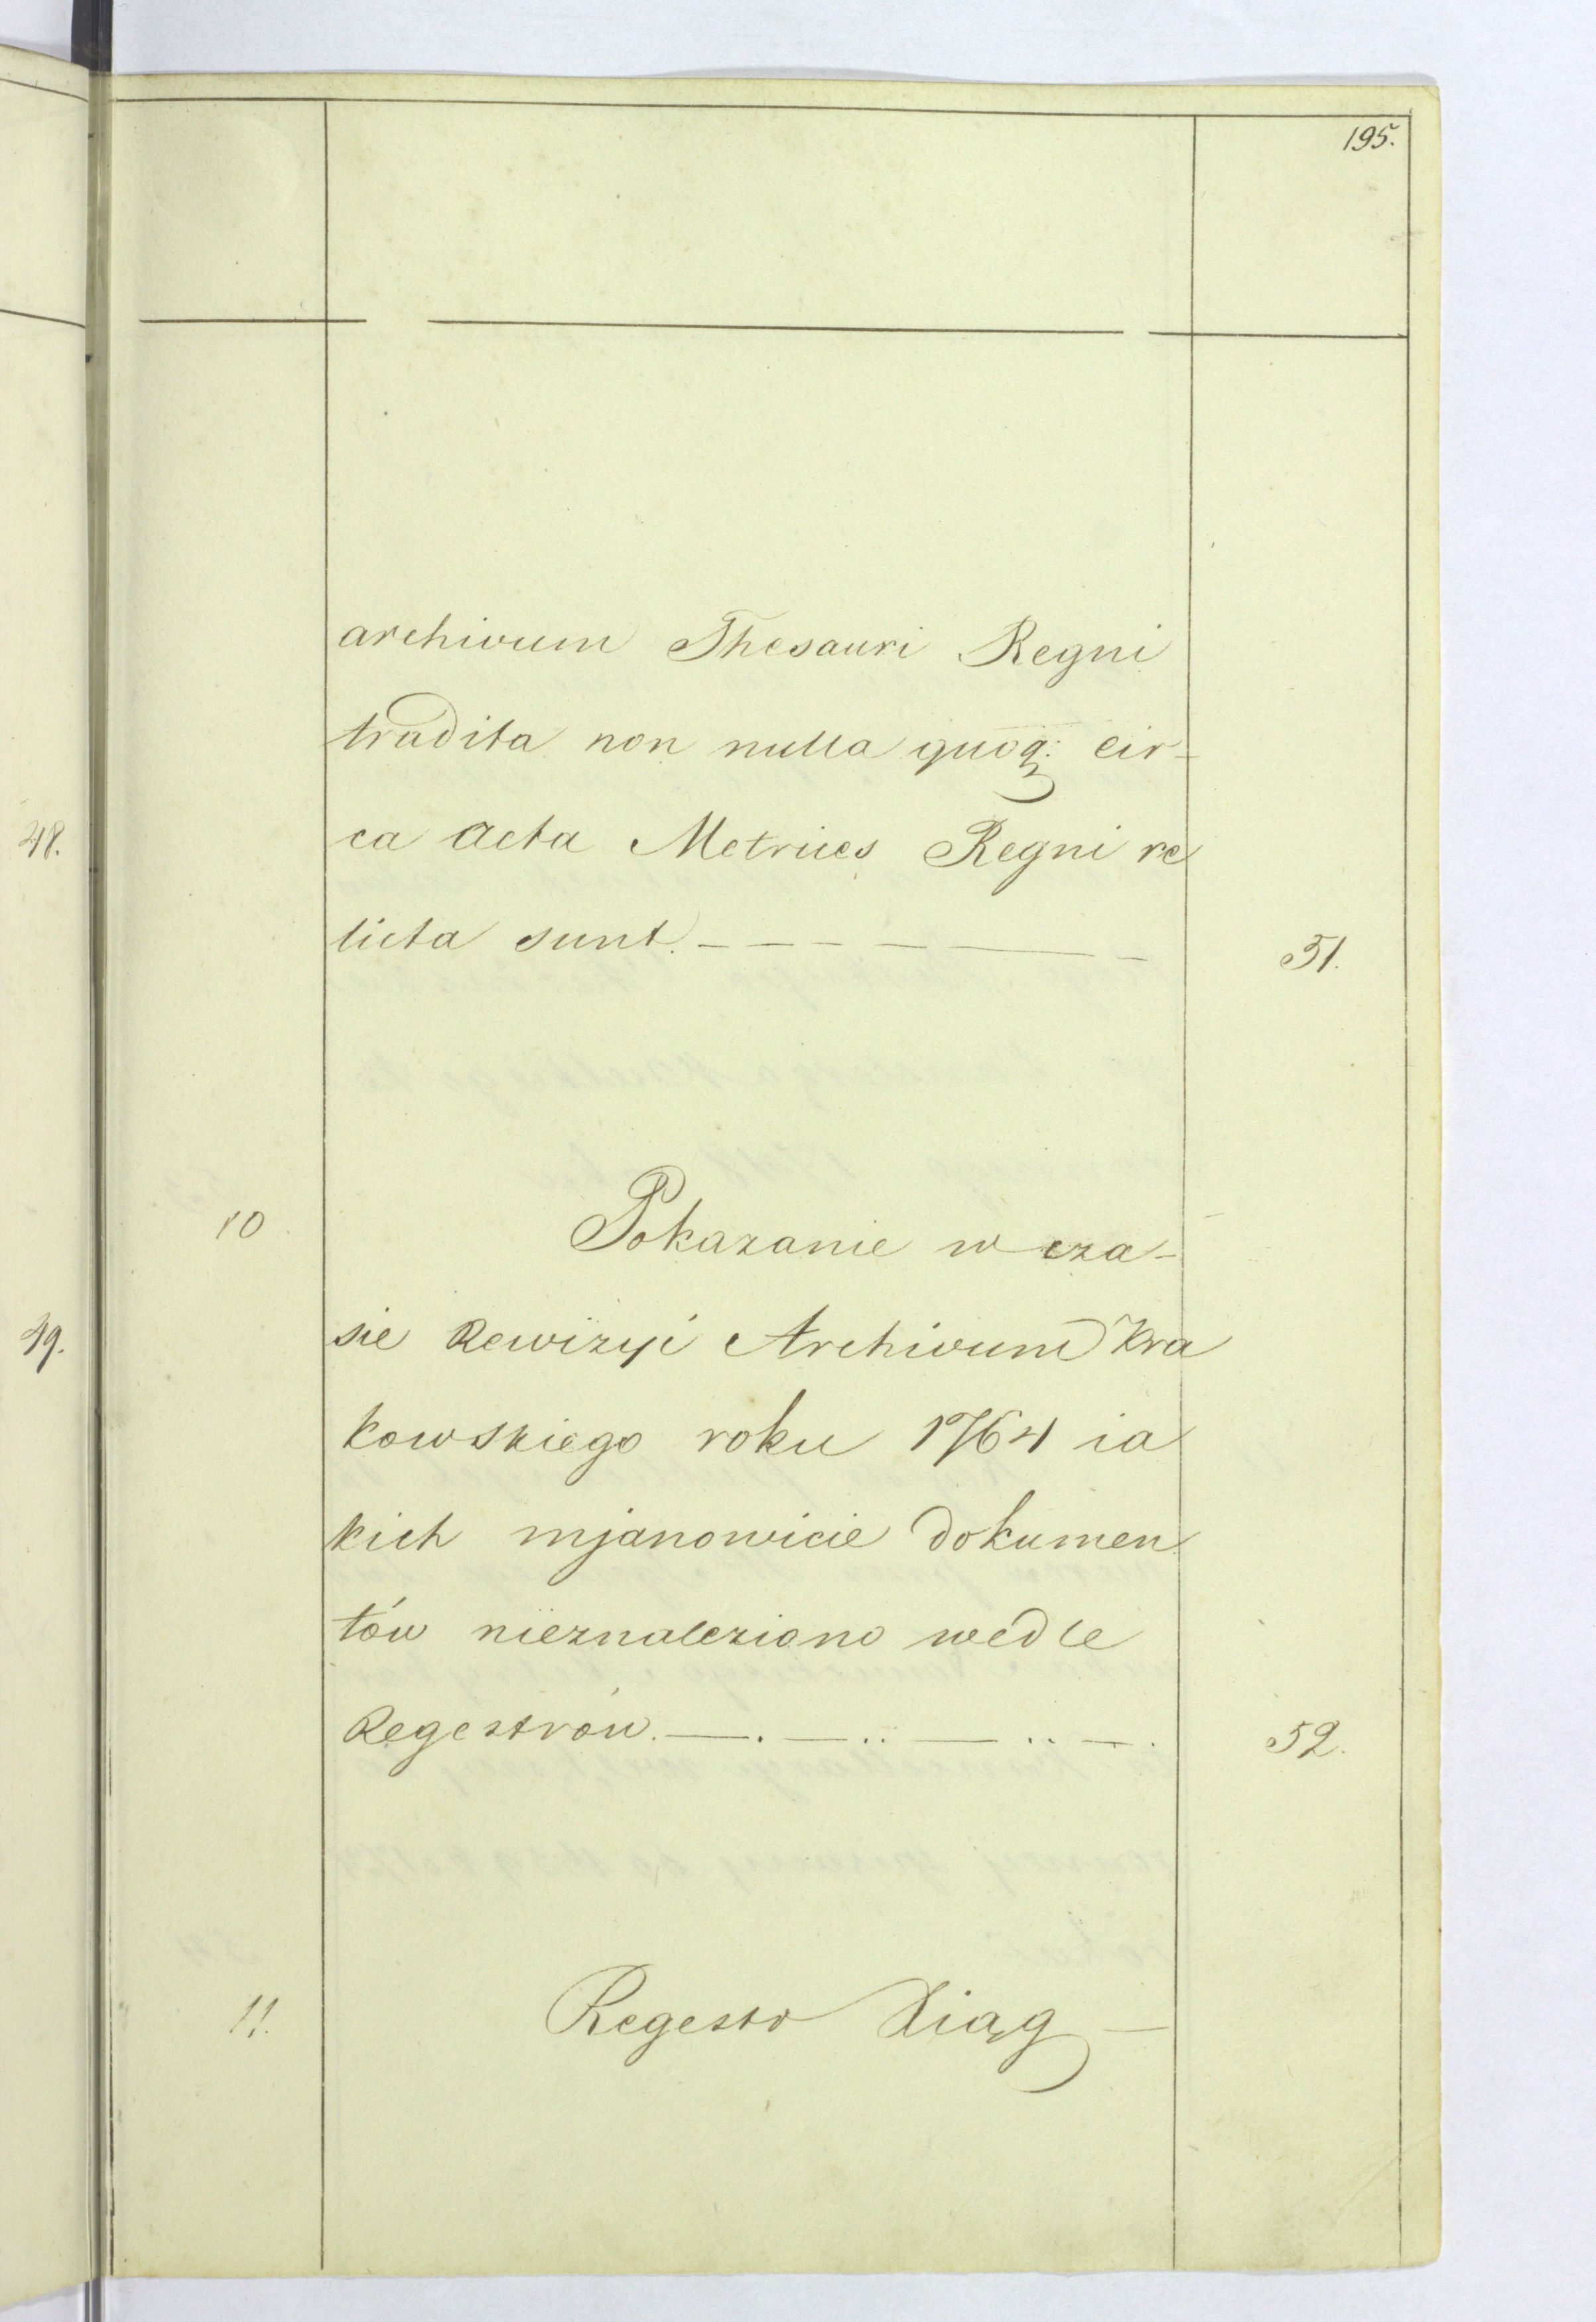 195.
archivum Thesauri Regni
tradita non nulla quoq: cir-
48.
ca acta Metrices Regni re
licta sunt. 51.
10 Pokazanie w cza-
49.
sie Rewizyi Archivum Kra
kowskiego roku 1764 ia
kich mjanowicie dokumen
tów nieznaleziono wedle
Regestrów. 52.
11. Regestr Xiąg